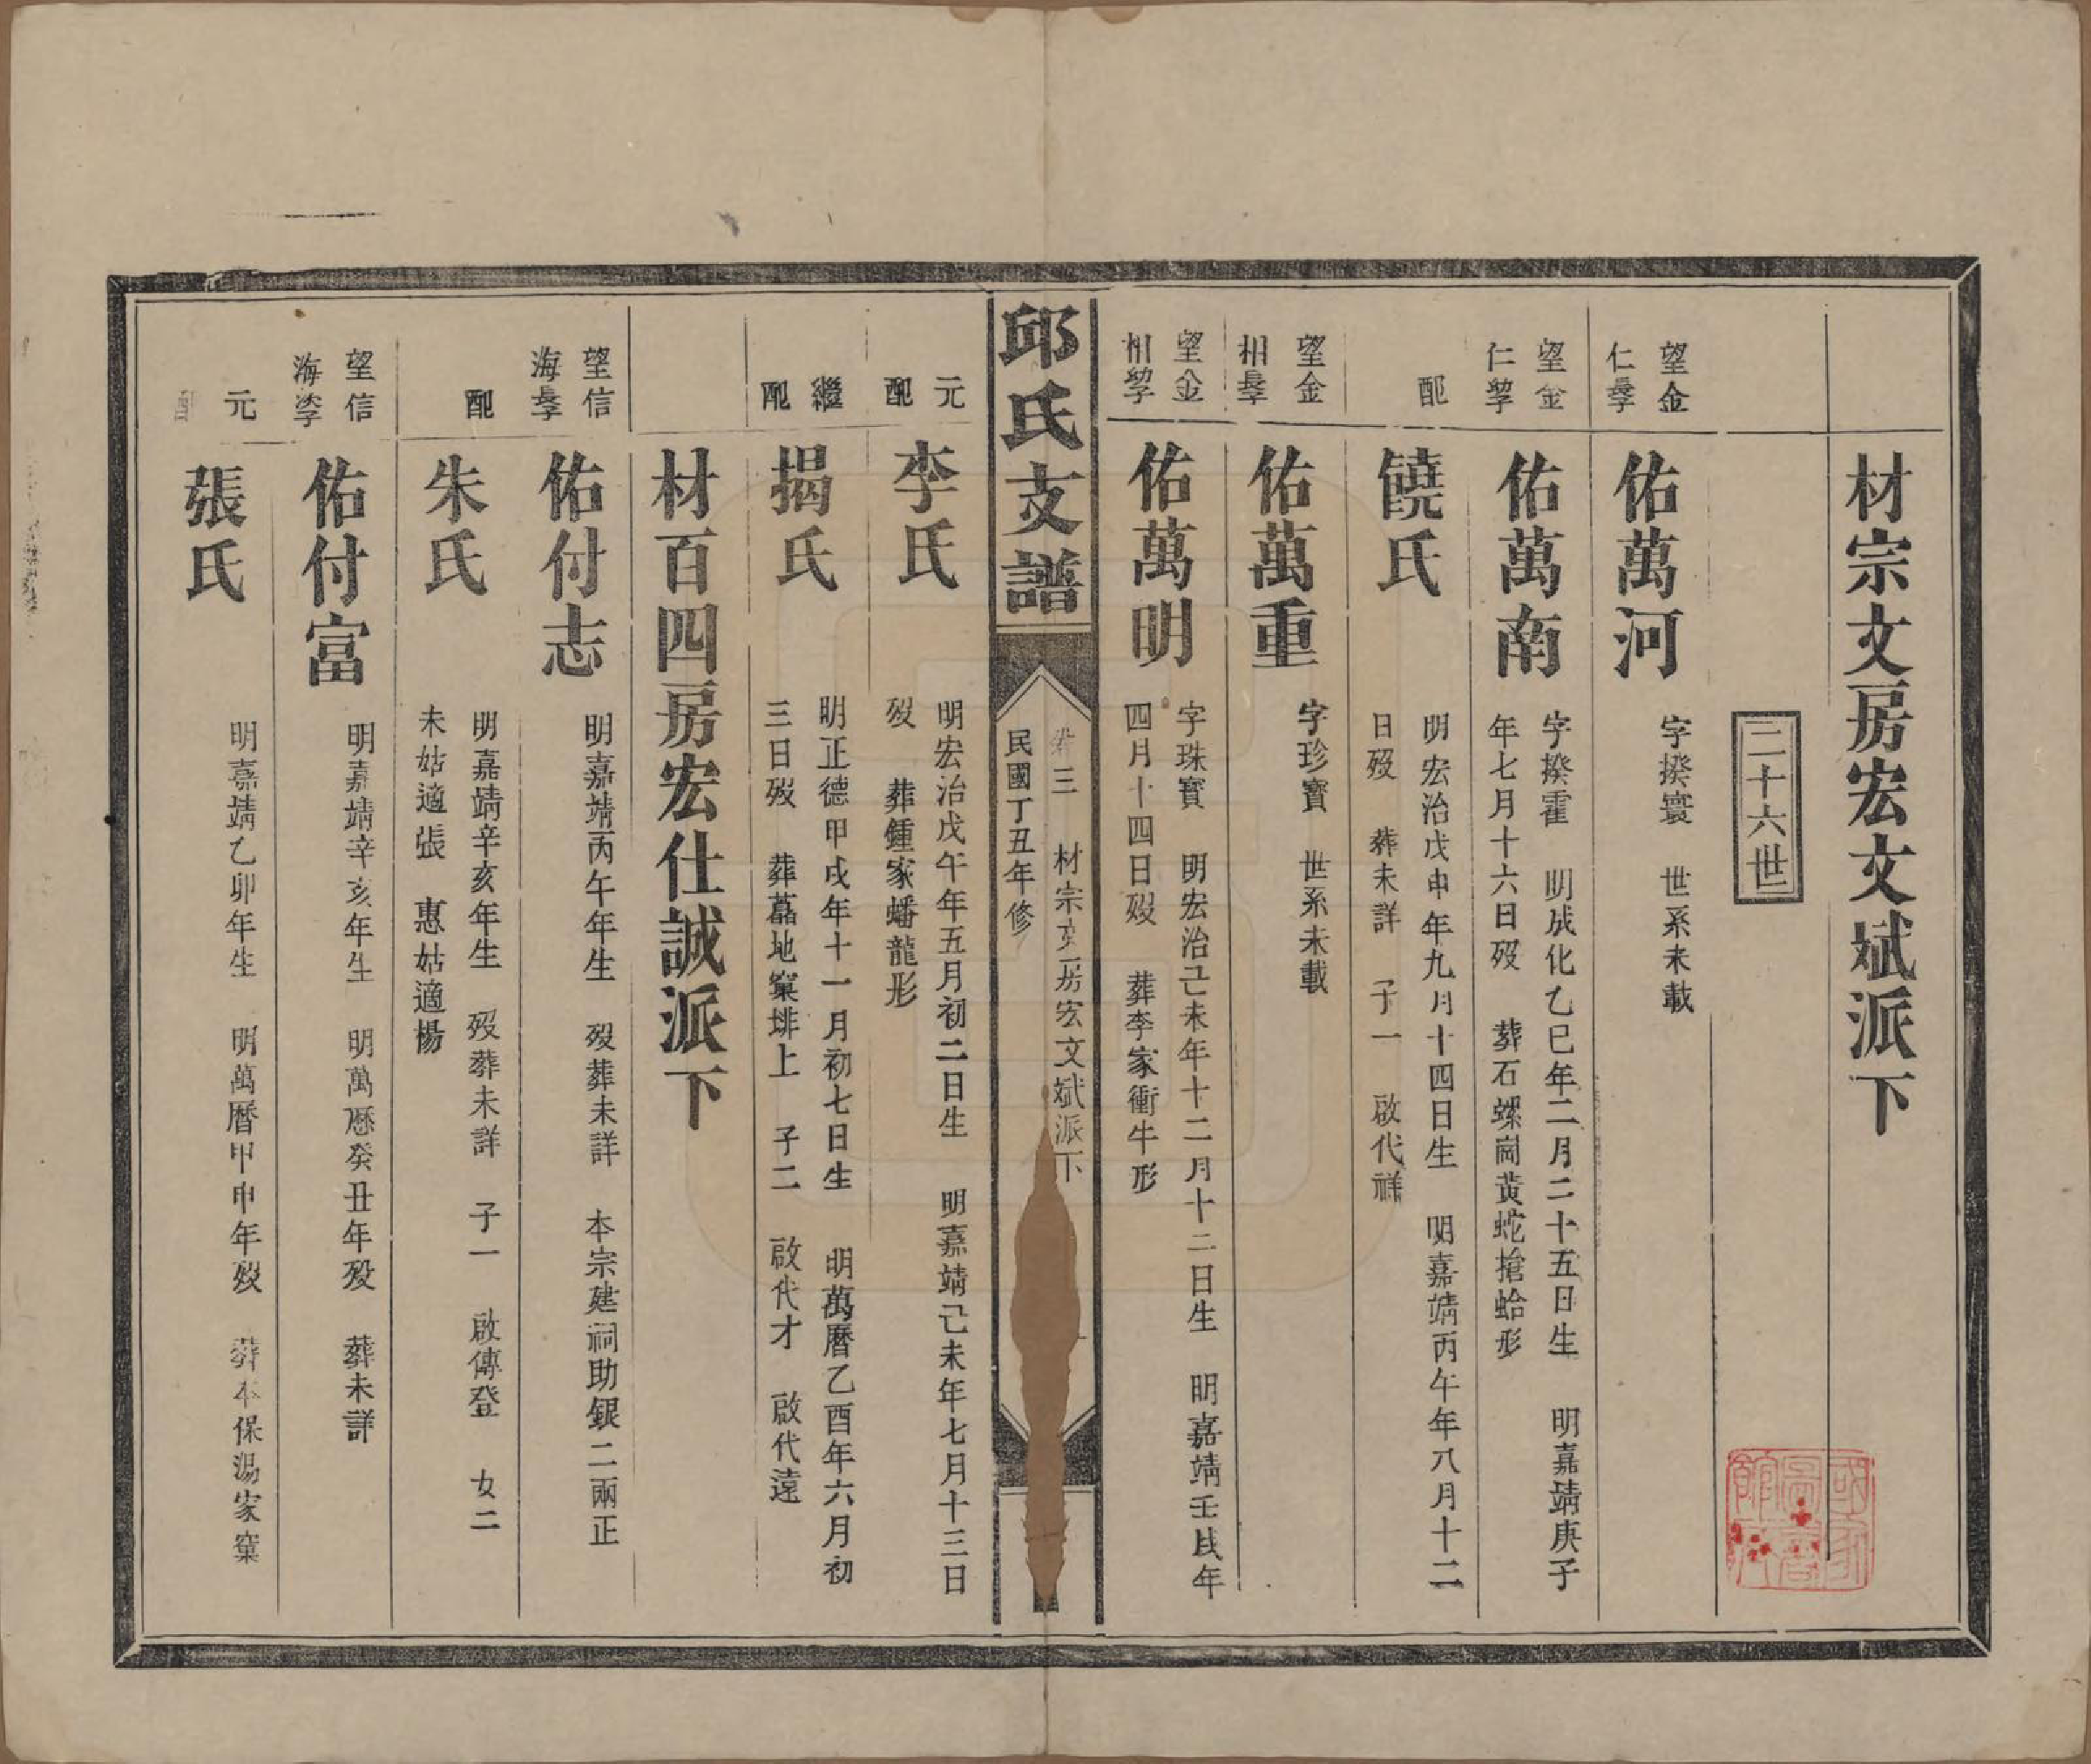 材宗文房宏文斌派下
二十六世
望金
仁長子
佑萬河
字揆寰 世系未載
望金
仁次子
佑萬南
字揆霍 明成化乙巳年二月二十五日生 明嘉靖庚子
年七月十六日歿 葬石螺崗黃蛇搶蛤形
配
饒氏
明宏治戊申年九月十四日生 明嘉靖丙午年八月十二
日歿 葬未詳 子一 啟代祥
望金
相長子
佑萬重
字珍寶 世系未載
望金
相次子
佑萬明
字珠寶 明宏治己未年十二月十二日生 明嘉靖壬戌年
四月十四日歿 葬李家衝牛形
邱氏支譜
卷三 材宗文房宏文斌派下
民國丁丑年修
元
配
李氏
明宏治戊午年五月初二日生 明嘉靖己未年七月十三日
歿 葬鍾家蟠龍形
繼
配
揭氏
明正德甲戌年十一月初七日生 明萬曆乙酉年六月初
三日歿 葬藠地窠排上 子二 啟代才 啟代遠
材百四房宏仕誠派下
望信
海長子
佑付志
明嘉靖丙午年生 歿葬未詳 本宗建祠助銀二兩正
配
朱氏
明嘉靖辛亥年生 歿葬未詳 子一 啟傳登 女二
未姑適張 惠姑適楊
望信
海次子
佑付富
明嘉靖辛亥年生 明萬曆癸丑年歿 葬未詳
元
配
張氏
明嘉靖乙卯年生 明萬曆甲申年歿 葬本保湯家窠